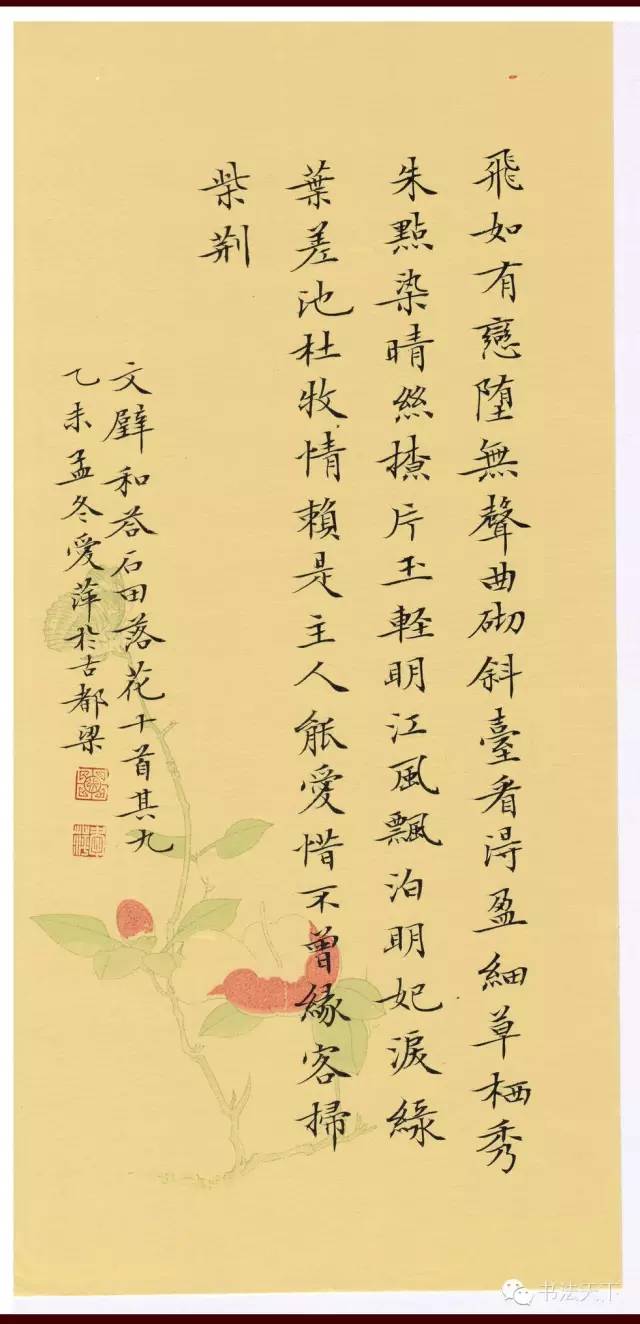 飛如有戀堕無聲曲砌斜臺看淂盈細草栖秀
朱點染晴絲撩片玉軽明江風飄泊明妃淚綠
葉差池杜牧情賴是主人能愛惜不曾緣客掃
柴荆
文璧和荅石田落花十首其九
乙未孟冬愛萍於古都梁
书法天下